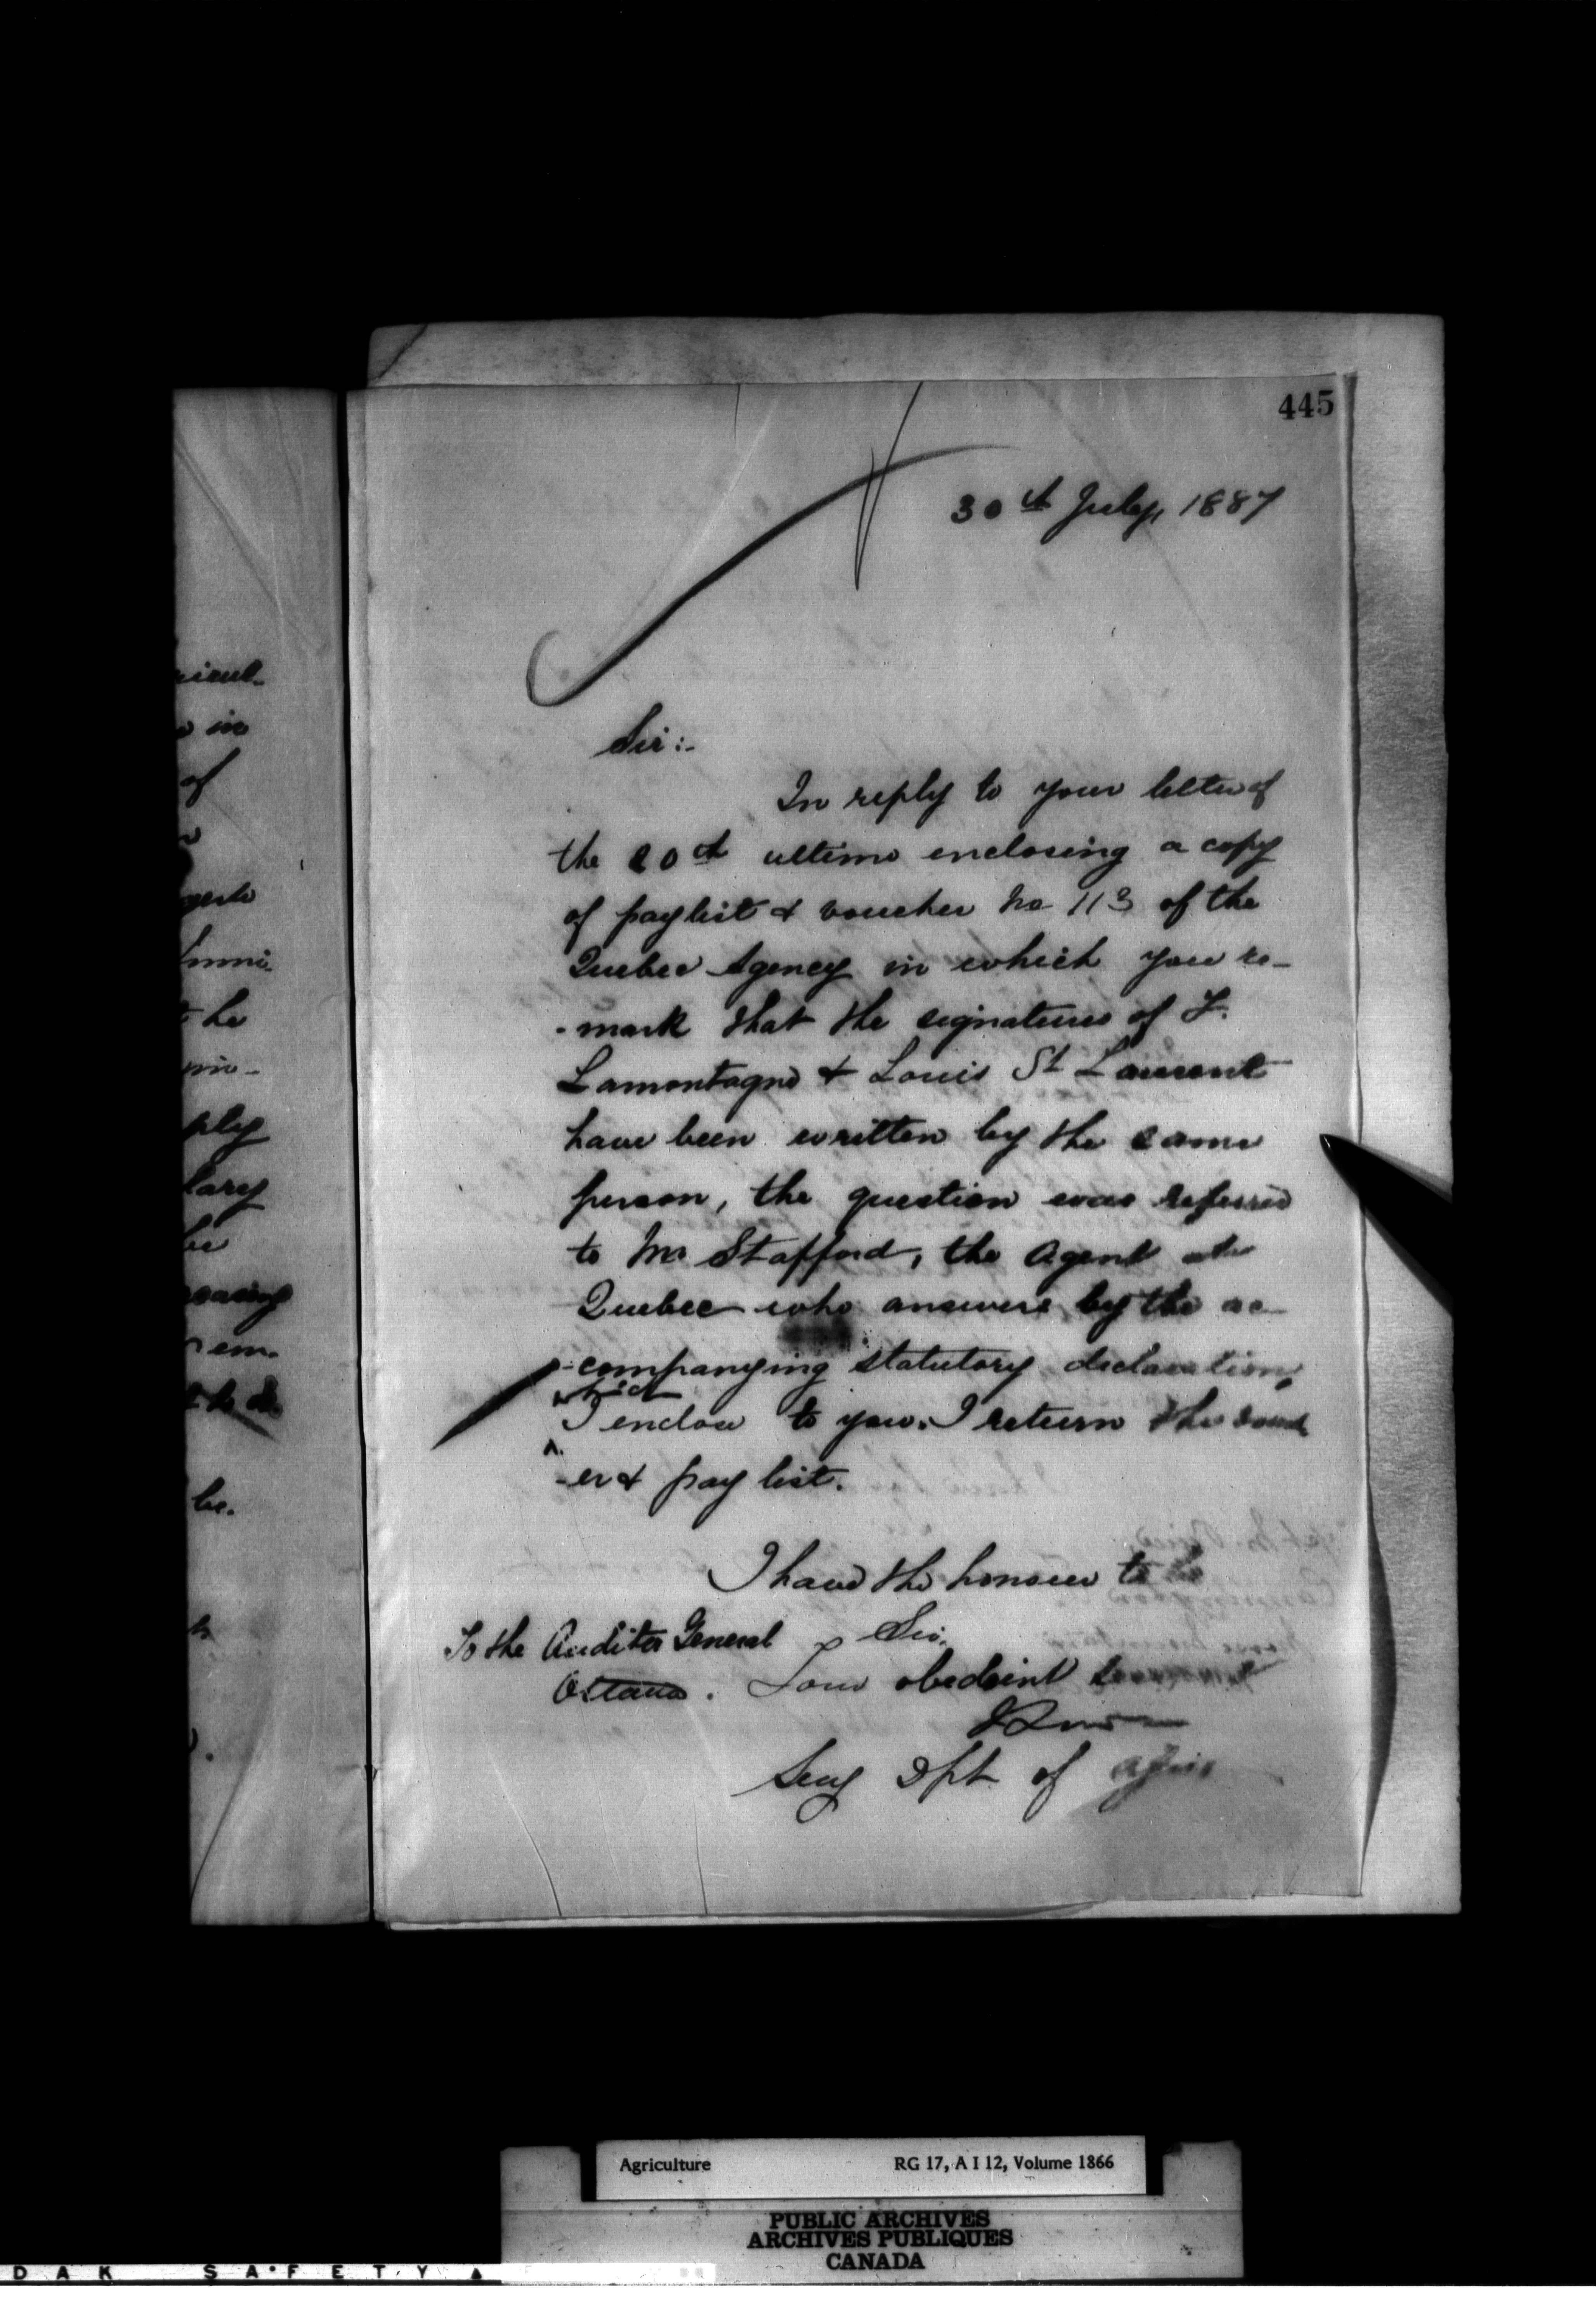 445
30th July, 1887
Sir:-
In reply to your letter of
the 20th ultimo enclosing a copy
of paylist & voucher No 113 of the
Quebec Agency in which you re-
-mark that the signatures of F.
Lamontagne & Louis St Laurent
have been written by the same
person, the question was referred
to Mr Stafford, the Agent at
Quebec who answers by the ac-
-companying statutory declaration,
which
I enclose to you. I return the vouch
-er & pay list.
I have the honour to be
Sir,
To the Auditor General
Your obedient servant
Ottawa.
Secy Dpt of Agric
icul-
in
of
he
ply
lary
em.
be.
Agriculture RG 17, A I 12, Volume 1866
PUBLIC ARCHIVES
ARCHIVES PUBLIQUES
CANADA
DAK SAFETY